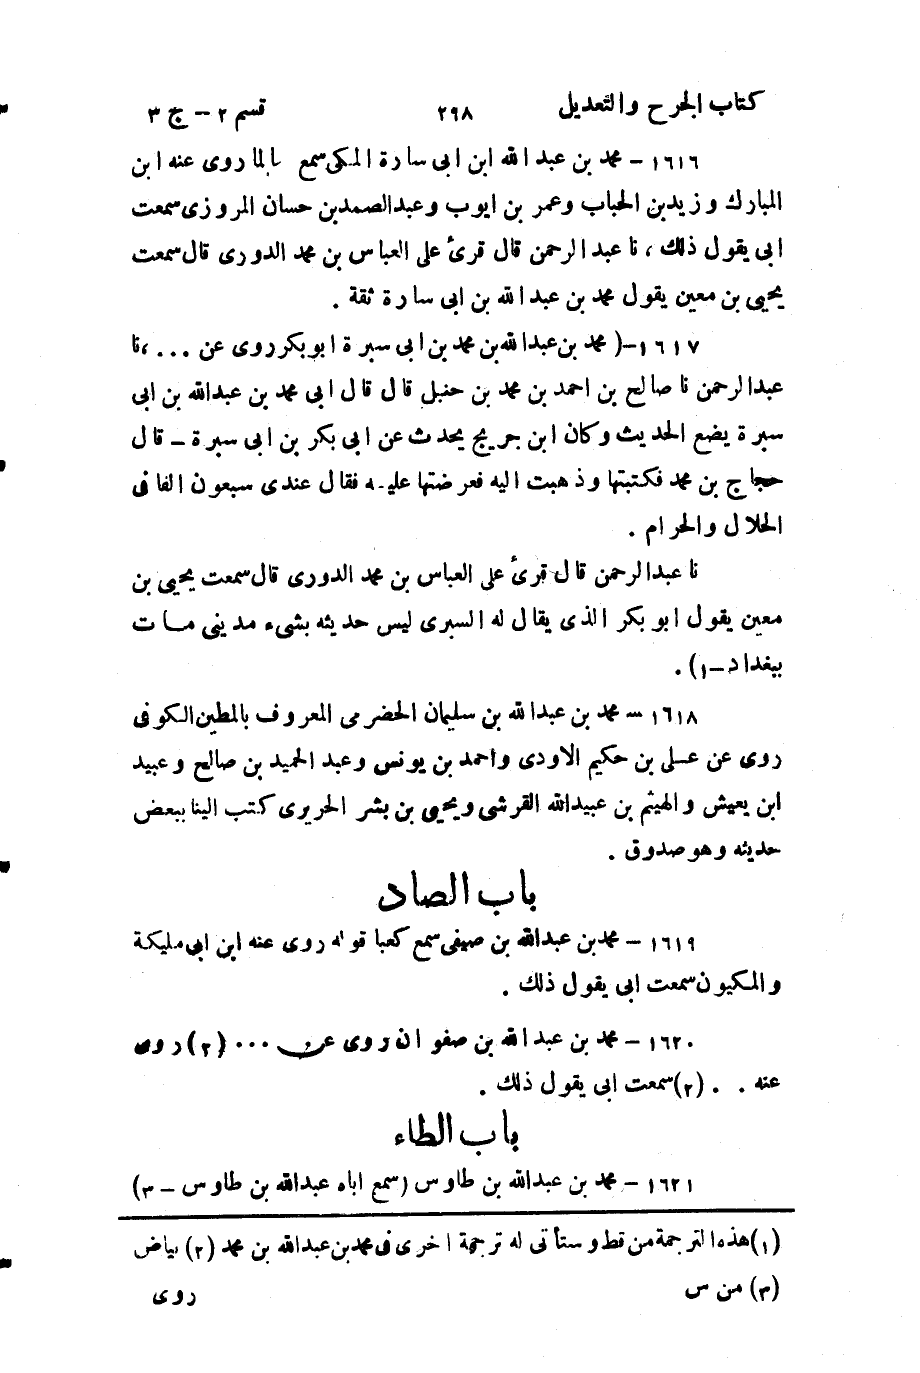 كتاب الجرح والتعديل ٢٩٨ قسم ٢ – ج ٣
١٦١٦ – محمد بن عبد الله ابن ابى سارة المكى سمع سالما روى عنه ابن
المبارك وزيد بن الحباب وعمر بن ايوب وعبد الصمد بن حسان المروزى سمعت
ابى يقول ذلك ، نا عبد الرحمن قال قرئ على العباس بن محمد الدورى قال سمعت
يحيى بن معين يقول محمد بن عبد الله بن ابى سارة ثقة .
١٦١٧ –( محمد بن عبد الله بن محمد بن ابى سبرة ابو بكر روى عن ... ، نا
عبد الرحمن نا صالح بن احمد بن محمد بن حنبل قال قال ابى محمد بن عبد الله بن ابى
سبرة يضع الحديث وكان ابن جريج يحدث عن ابى بكر بن ابى سبرة – قال
حجاج بن محمد فكتبتها وذهبت اليه فعرضتها عليه فقال عندى سبعون الفا فى
الحلال والحرام .
نا عبد الرحمن قال قرئ على العباس بن محمد الدورى قال سمعت يحيى بن
معين يقول ابو بكر الذى يقال له السبرى ليس حديثه بشىء مدينى مات
ببغداد – ١) .
١٦١٨ – محمد بن عبد الله بن سليمان الحضرمى المعروف بالمطين الكوفى
روى عن على بن حكيم الاودى واحمد بن يونس وعبد الحميد بن صالح وعبيد
ابن يعيش والهيثم بن عبيد الله القرشى ويحيى بن بشر الحريرى كتب الينا ببعض
حديثه وهو صدوق .
باب الصاد
١٦١٩ – محمد بن عبد الله بن صيفى سمع كعبا قوله روى عنه ابن ابى مليكة
والمكيون سمعت ابى يقول ذلك .
١٦٢٠ – محمد بن عبد الله بن صفوان روى عن ... (٢) روى
عنه . . (٢) سمعت ابى يقول ذلك .
باب الطاء
١٦٢١ – محمد بن عبد الله بن طاوس (سمع اباه عبد الله بن طاوس – ٣)
(١) هذه الترجمة من قط وستأتى له ترجمة اخرى فى محمد بن عبد الله بن محمد (٢) بياض
(٣) من س روى